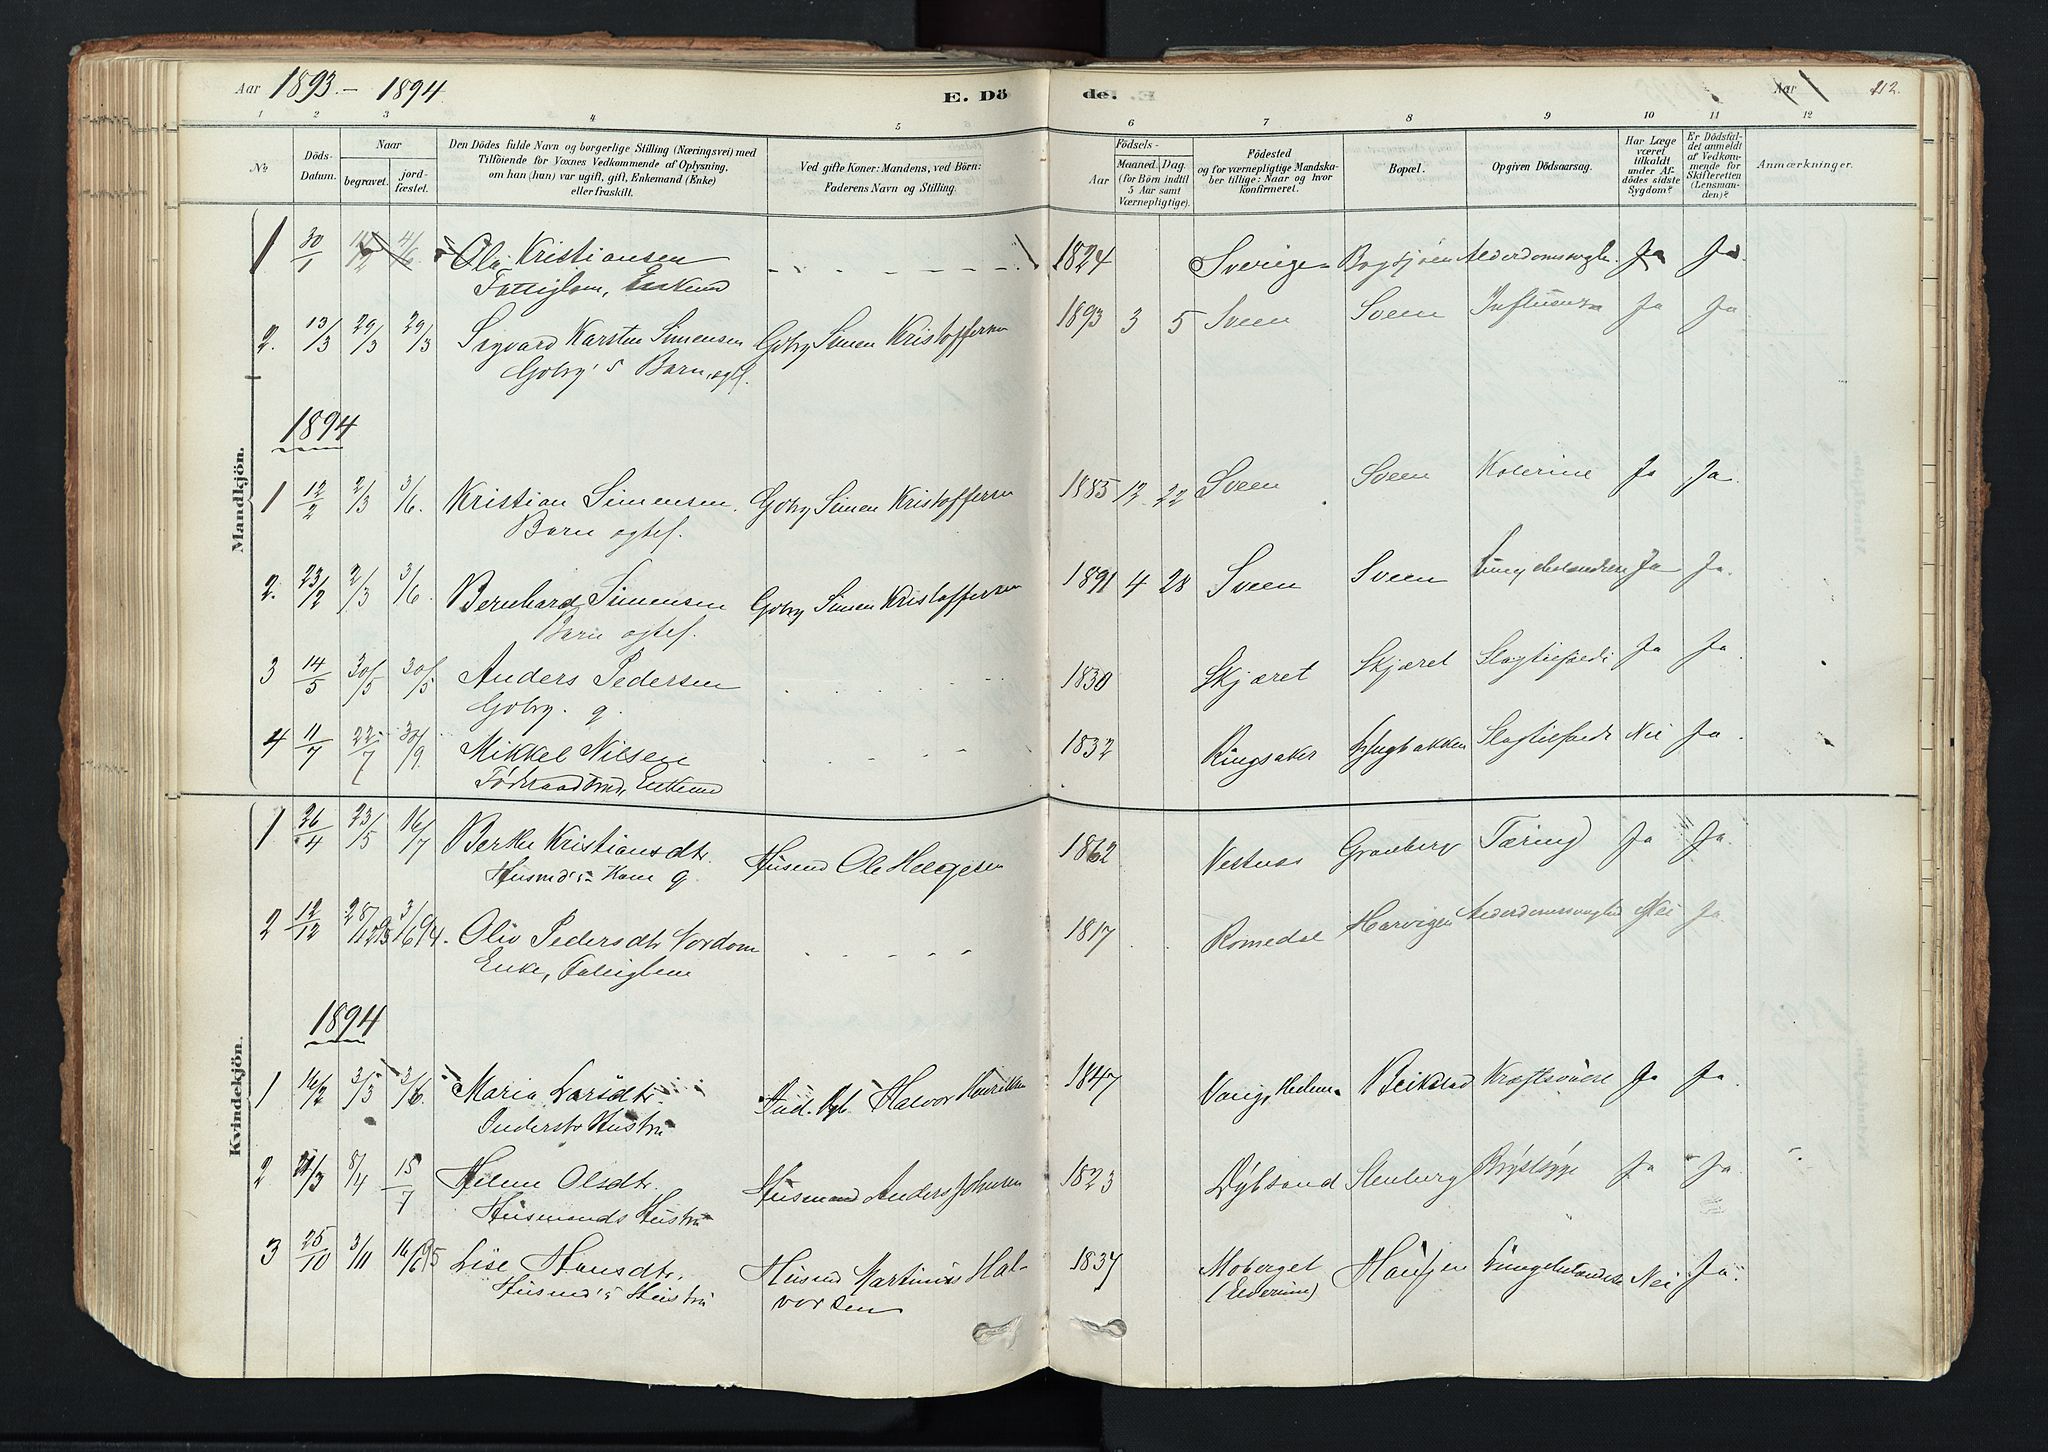 Aar 1893 - 1894. E. Dö de. Aar 212.
1 2 3 4 5 6 7 8 9 10 11 12
No. Döds-Datum. Naar begravet. jordfæstet. Den Dödes fulde Navn og borgerlige Stilling (Næringsvei) med Tilföiende for Voxnes Vedkommende af Oplysning, om han (hun) var ugift, gift, Enkemand (Enke) eller fraskilt. Ved gifte Koner: Mandens, ved Börn: Faderens Navn og Stilling. Födsels- Aar Maaned. Dag. (for Börn indtil 5 Aar samt Værnepligtige). Födested og for værnepligtige Mandskaber tillige: Naar og hvor konfirmeret. Bopæl. Opgiven Dödsaarsag. Har Læge været tilkaldt under Afdödes sidste Sygdom? Er Dödsfaldet anmeldt af Vedkommende for Skifteretten (Lensmanden)? Anmærkninger.
Mandkjön.
1 30/1 4/6 Ola Kristiansen 1824 Sverige Ja Ja.
Fattiglem, Enkemd
2. 13/3 29/3 29/3 Sigvard Karsten Simensen Gbby Simen Kristoffersen 1893 3 5 Sveen Sveen Influensa Ja Ja
Barn, egt.
1894
1 12/2 2/3 3/6. Kristian Simensen. Simen Kristoffersen 1885 12. 22 Sveen Sveen Kolerine Ja Ja.
Barn egtef.
2. 23/2 2/3 3/6. Bernhard Simensen Simen Kristoffersen 1891 4 28 Sveen Sveen Lungebetændelse Ja Ja.
Barn egtef.
3 14/5 30/5 30/5 Anders Pedersen 1830 Skjæret Skjæret Slagtilfælde Ja Ja.
g.
4 11/7 22/7 30/9. Mikkel Nilsen 1832 Ringsaker Slagtilfælde Nei Ja.
Føderaadsmd, Enkemd
Kvindekjön.
1 26/4 23/5 16/7 Berthe Kristiansdtr. Husmd Ole Helgesen 1862 Vestnæs Granberg Tæring Ja Ja.
Husmd's Kone g
2 12/12 28/12 93 3/6 94. Oliv Pedersdtr Nordom 1817 Romedal Harvigen Alderdomssvaghed Nei Ja.
Enke, Fattiglem
1894
1 16/2 3/3 3/6. Maria Larsdtr. Halvor Henriksen 1847 Vang, Hedem. Beikstad Ja Ja.
Inderste Hustru
2 21/3 8/4 15/7 Helene Olsdtr. Husmand Anders Johnsen 1823 Dybsand Stenberg Brystsyge Ja Ja
Husmands Hustru
3 25/10 3/11 16/6 95 Lise Hansdtr. Husmd Martinius Hal- 1837 Moberget Lungebetændelse Nei Ja.
Husmd's Hustru vorsen (Elverum)